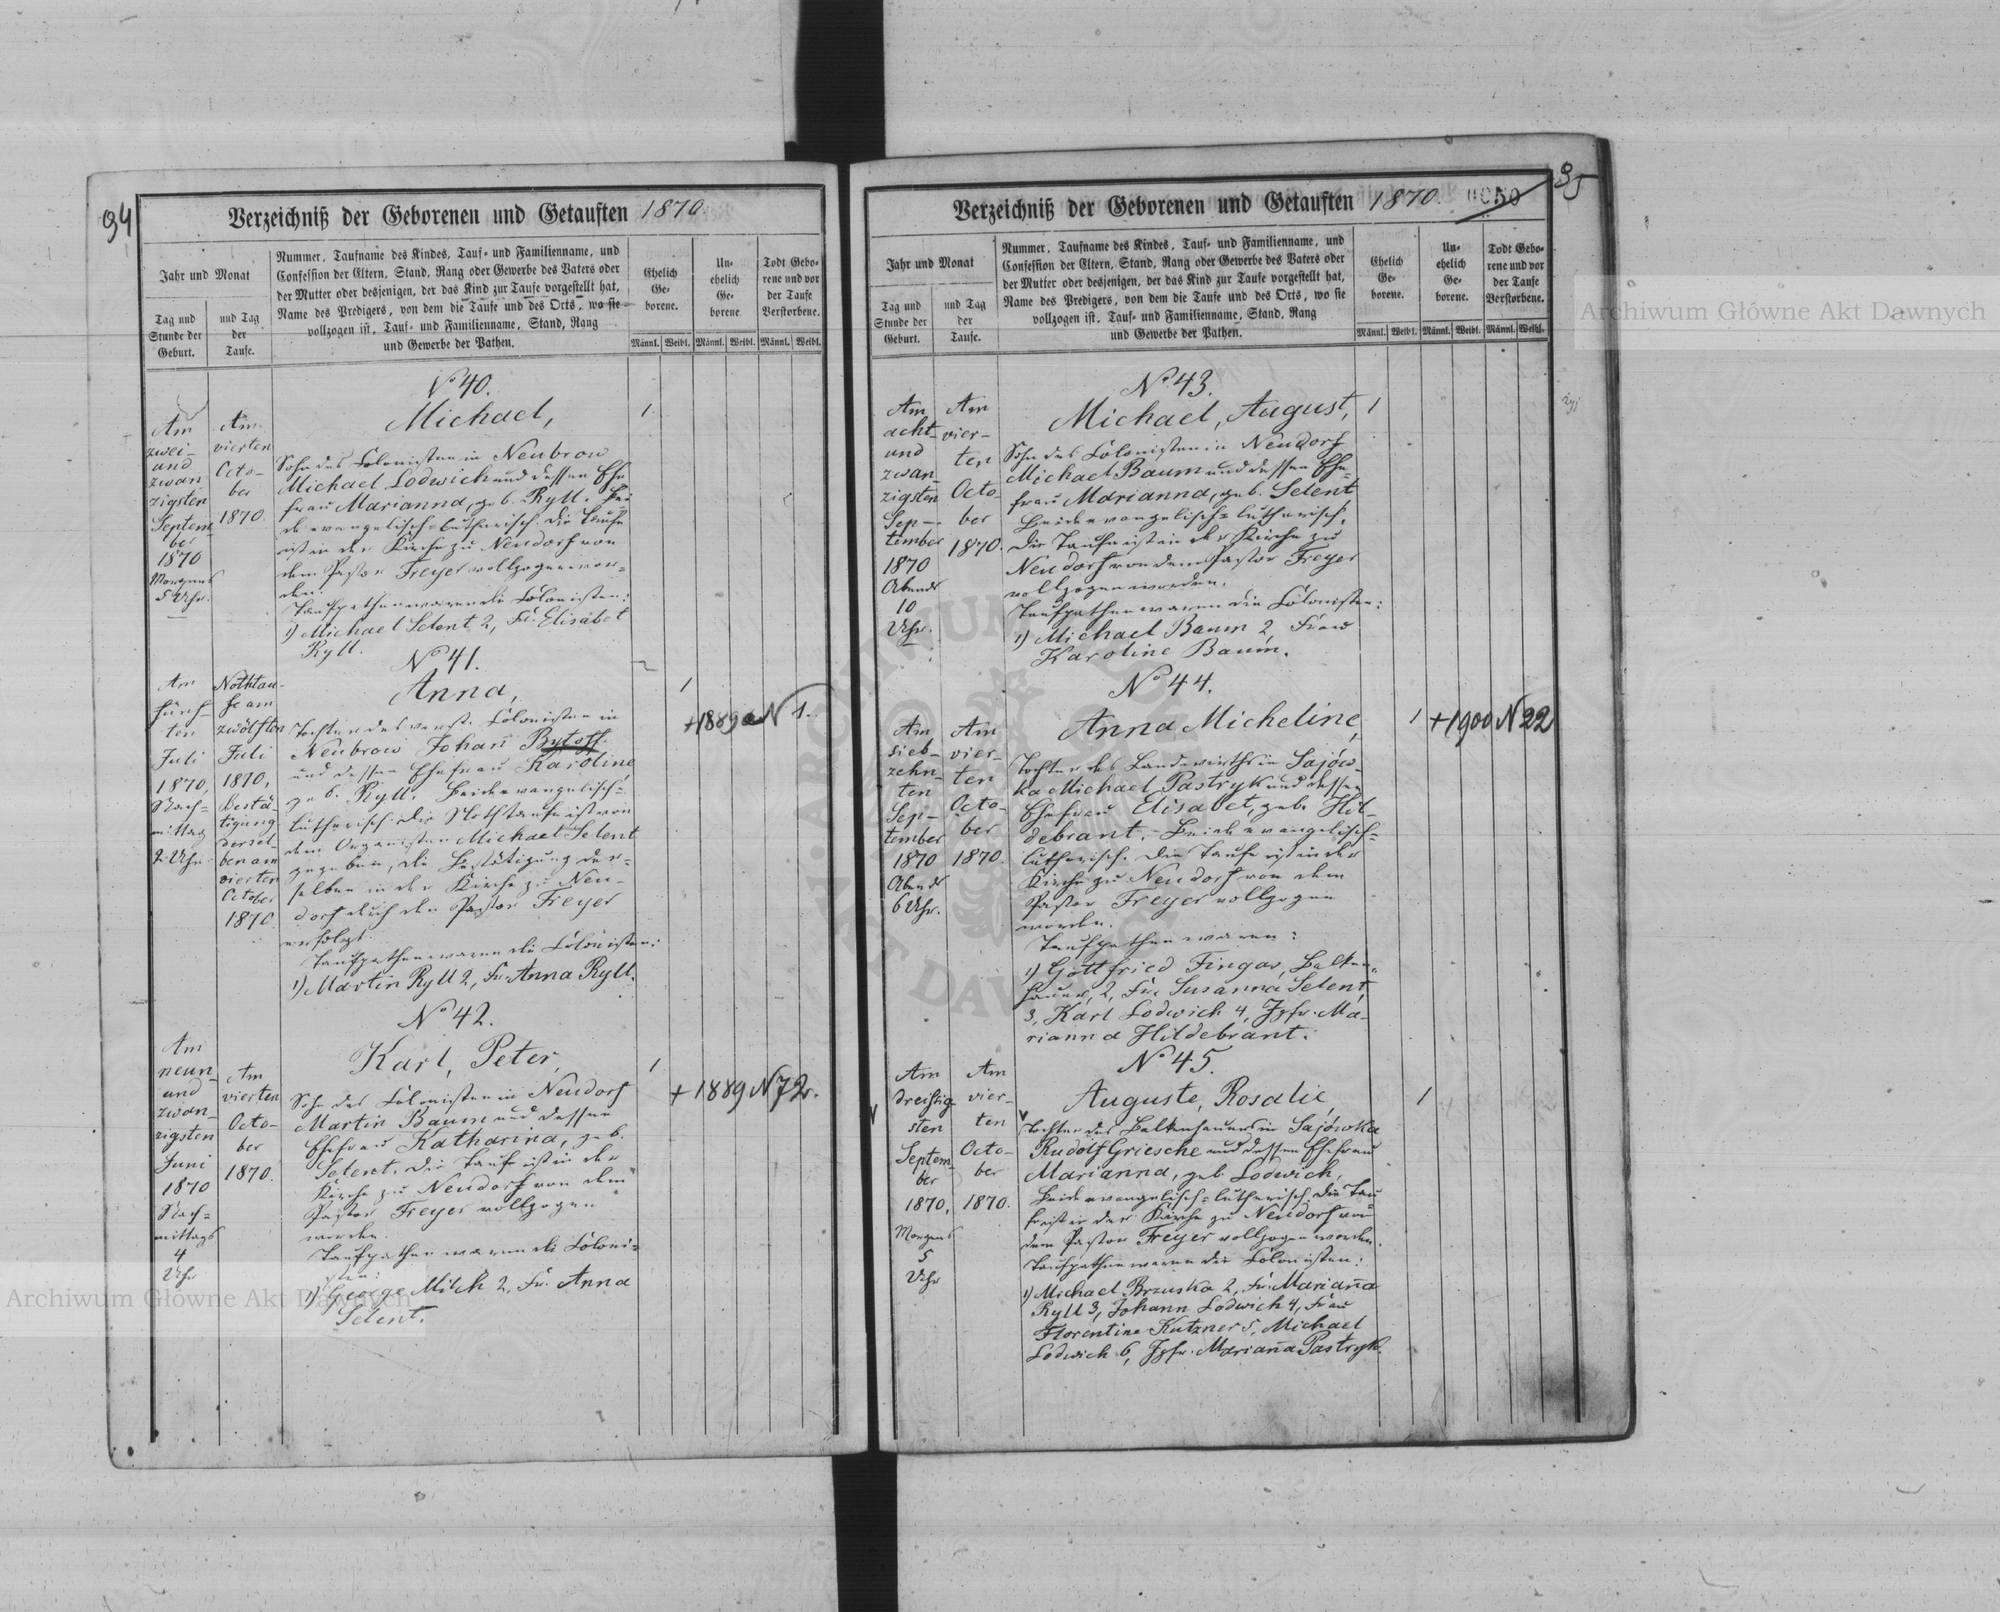 94
Verzeichniß der Geborenen und Getauften 1870
Jahr und Monat
Tag und Stunde der Geburt.
und Tag der Taufe.
Nummer, Taufname des Kindes, Tauf- und Familienname, und
Confession der Eltern, Stand, Rang oder Gewerbe des Vaters oder
der Mutter oder desjenigen, der das Kind zur Taufe vorgestellt hat,
Name des Predigers, von dem die Taufe und des Orts, wo sie
vollzogen ist, Tauf- und Familienname, Stand, Rang
und Gewerbe der Pathen.
Ehelich Ge- borene.
Un- ehelich Ge- borene
Todt Gebo- rene und vor der Taufe Verstorbene.
Männl. Weibl. Männl. Weibl. Männl. Weibl.
Am
zwei-
und
zwan
zigsten
Septem
ber
1870
Morgens
5 Uhr.
Am
vierten
Octo-
ber
1870.
No 40.
Michael,
1
Sohn des Colonisten in Neubrow
Michael Lodwich und dessen Ehe
frau Marianna, geb. Ryll. Bei
de evangelisch-lutherisch. Die Taufe
ist in der Kirche zu Neudorf von
dem Pastor Freyer vollzogen wor-
den.
Taufpathen waren die Colonisten:
1) Michael Selent 2, Fr. Elisabet
Ryll.
Am
fünf-
ten
Juli
1870,
Nach-
mittag
2 Uhr
Nothtau-
fe am
zwölften
Juli
1870,
Bestä-
tigung
dersel-
ben am
vierten
October
1870.
No 41.
Anna,
1
+1889 a N 1.
Tochter des verst. Colonisten in
Neubrow Johan
und dessen Ehefrau Karoline
geb. Ryll. Beide evangelisch-
lutherisch. Die Nothtaufe ist von
dem Organisten Michael Selent
gegeben, die Bestätigung der-
selben in der Kirche zu Neu-
dorf durch den Pastor Freyer
erfolgt.
Taufpathen waren die Colonisten:
1) Martin Ryll 2, Fr. Anna Ryll.
Am
neun-
und
zwan-
zigsten
Juni
1870
Nach-
mittags
4
Uhr
Am
vierten
Octo-
ber
1870.
No 42.
Karl, Peter,
1
+ 1889 N 72.
Sohn des Colonisten in Neudorf
Martin Baum und dessen
Ehefrau Katharina, geb.
Selent. Die Taufe ist in der
Kirche zu Neudorf von dem
Pastor Freyer vollzogen
worden.
Taufpathen waren die Coloni-
sten:
1) George Milch 2, Fr. Anna
Selent.
95
Verzeichniß der Geborenen und Getauften 1870.
Jahr und Monat
Tag und Stunde der Geburt.
und Tag der Taufe.
Nummer, Taufname des Kindes, Tauf- und Familienname, und
Confession der Eltern, Stand, Rang oder Gewerbe des Vaters oder
der Mutter oder desjenigen, der das Kind zur Taufe vorgestellt hat,
Name des Predigers, von dem die Taufe und des Orts, wo sie
vollzogen ist, Tauf- und Familienname, Stand, Rang
und Gewerbe der Pathen.
Ehelich Ge- borene.
Un- ehelich Ge- borene.
Todt Gebo- rene und vor der Taufe Verstorbene.
Männl. Weibl. Männl. Weibl. Männl. Weibl.
Am
acht-
und
zwan-
zigsten
Sep-
tember
1870
Abends
10
Uhr.
Am
vier-
ten
Octo-
ber
1870.
No 43.
Michael, August,
1
Sohn des Colonisten in Neudorf
Michael Baum und dessen Ehe-
frau Marianna, geb. Selent
Beide evangelisch-lutherisch.
Die Taufe ist in der Kirche zu
Neudorf von dem Pastor Freyer
vollzogen worden.
Taufpathen waren die Colonisten:
1) Michael Baum 2, Frau
Karoline Baum.
Am
sieb-
zehn-
ten
Sep-
tember
1870
Abends
6 Uhr.
Am
vier-
ten
Octo-
ber
1870.
No 44.
Anna Micheline,
1
+1900 N 22
Tochter des Landwirths in Sajów-
ka Michael Pastryk und dessen
Ehefrau Elisabet, geb. Hil-
debrant. Beide evangelisch-
lutherisch. Die Taufe ist in der
Kirche zu Neudorf von dem
Pastor Freyer vollzogen
worden.
Taufpathen waren:
1) Gottfried Fingas, Balken-
hauer, 2, Fr. Susanna Selent,
3, Karl Lodwich 4, Jgfr. Ma-
rianna Hildebrant.
Am
dreißig-
sten
Septem-
ber
1870,
Morgens
5
Uhr
Am
vier-
ten
Octo-
ber
1870.
No 45.
Auguste, Rosalie
1
Tochter des Balkenhauers in Sajówka
Rudolf Griesche und dessen Ehefrau
Marianna, geb. Lodwich,
Beide evangelisch-lutherisch. Die Tau
fe ist in der Kirche zu Neudorf von
dem Pastor Freyer vollzogen worden.
Taufpathen waren die Colonisten:
1) Michael Brzuska 2, Fr. Mariana
Ryll 3, Johann Lodwich 4, Frau
Florentine Kutzner 5, Michael
Lodwich 6, Jgfr. Mariana Pastryk.
Archiwum Główne Akt Dawnych
Archiwum Główne Akt Dawnych